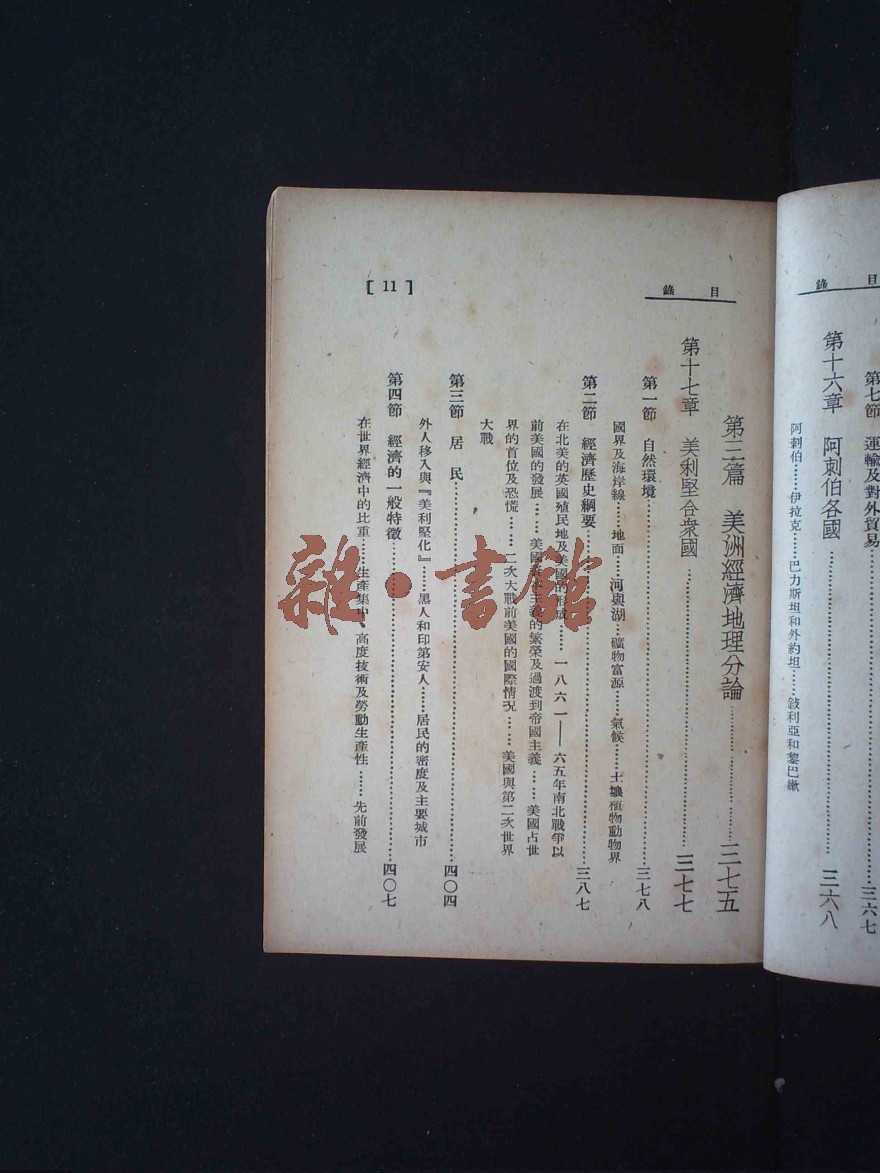 目錄
第七節 運輸及對外貿易……三六七
第十六章 阿刺伯各國……三六八
阿刺伯……伊拉克……巴力斯坦和外約坦……敍利亞和黎巴嫩
目錄
第三篇 美洲經濟地理分論……三七五
第十七章 美利堅合衆國……三七七
第一節 自然環境……三七八
國界及海岸線……地面……河與湖……礦物富源……氣候……土壤植物動物界
第二節 經濟歷史綱要……三八七
在北美的英國殖民地及美國的形成……一八六一——六五年南北戰爭以
前美國的發展……美國資本主義的繁榮及過渡到帝國主義……美國占世
界的首位及恐慌……二次大戰前美國的國際情況……美國與第二次世界
大戰
第三節 居民……四〇四
外人移入與『美利堅化』……黑人和印第安人……居民的密度及主要城市
第四節 經濟的一般特徵……四〇七
在世界經濟中的比重……生產集中、高度技術及勞動生產性……先前發展
[11]
雜·書館